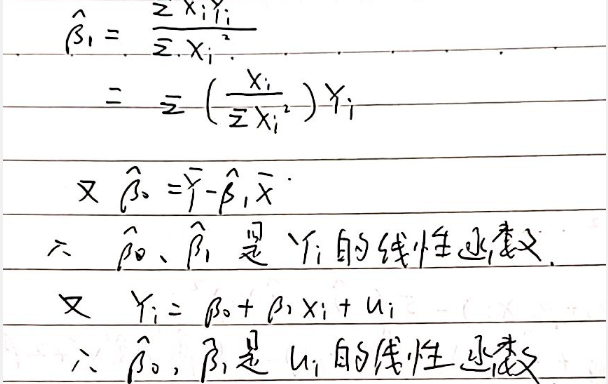 β̂₁ = Σ XᵢYᵢ / Σ Xᵢ²
= Σ (Xᵢ / ΣXᵢ²) Yᵢ
又 β̂₀ = Ȳ - β̂₁X̄
∴ β̂₀、β̂₁ 是 Yᵢ 的线性函数.
又 Yᵢ = β₀ + β₁Xᵢ + uᵢ
∴ β̂₀, β̂₁ 是 uᵢ 的线性函数